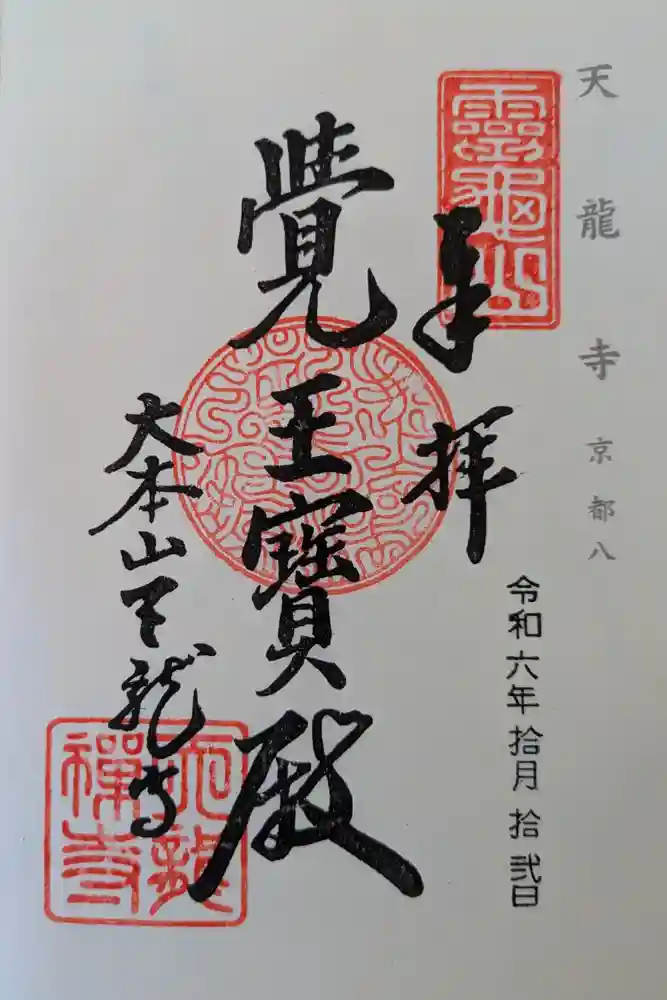 天龍寺 京都八
靈龜山
奉拝
令和六年拾月拾弐日
覺王寶殿
大本山天龍寺
天龍
禪寺